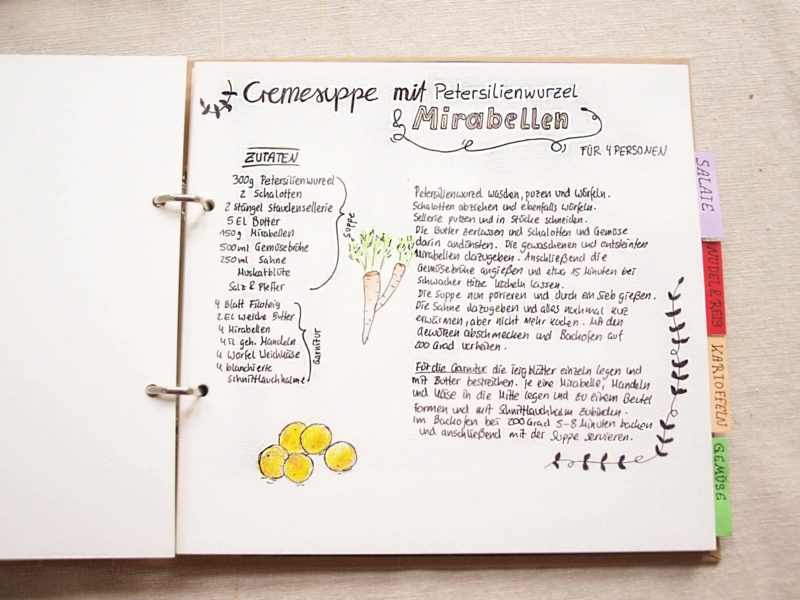 Cremesuppe mit Petersilienwurzel
& Mirabellen
FÜR 4 PERSONEN
ZUTATEN
300g Petersilienwurzel
2 Schalotten
2 Stängel Staudensellerie
5 EL Butter
150g Mirabellen
500ml Gemüsebrühe
250ml Sahne
Muskatblüte
Salz & Pfeffer
Suppe
4 Blatt Filoteig
2 EL weiche Butter
4 Mirabellen
4 TL geh. Mandeln
4 Würfel Weichkäse
4 blanchierte
Schnittlauchhalme
Garnitur
Petersilienwurzel waschen, puzen und würfeln.
Schalotten abziehen und ebenfalls würfeln.
Sellerie putzen und in Stücke schneiden.
Die Butter zerlassen und Schalotten und Gemüse
darin andünsten. Die gewaschenen und entsteinten
Mirabellen dazugeben. Anschließend die
Gemüsebrühe angießen und etwa 15 Minuten bei
Schwacher Hitze köcheln lassen.
Die Suppe nun pürieren und durch ein Sieb gießen.
Die Sahne dazugeben und alles nochmal kurz
erwärmen, aber nicht mehr kochen. Mit den
Gewürzen abschmecken und Backofen auf
200 Grad vorheizen.
Für die Garnitur die Teigblätter einzeln legen und
mit Butter bestreichen. Je eine Mirabelle, Mandeln
und Käse in die Mitte legen und zu einem Beutel
formen und mit Schnittlauchhalm zubinden.
Im Backofen bei 200 Grad 5-8 Minuten backen
und anschließend mit der Suppe servieren.
SALATE
NUDEL & REIS
KARTOFFELN
GEMÜSE